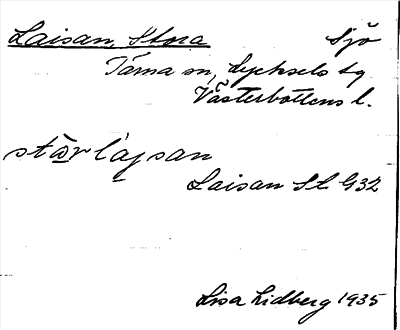 Laisan, Stora Sjö
Tärna sn, Lycksele tg
Västerbottens l.
stār lájsan
Laisan St. G32
Lisa Lidberg 1935